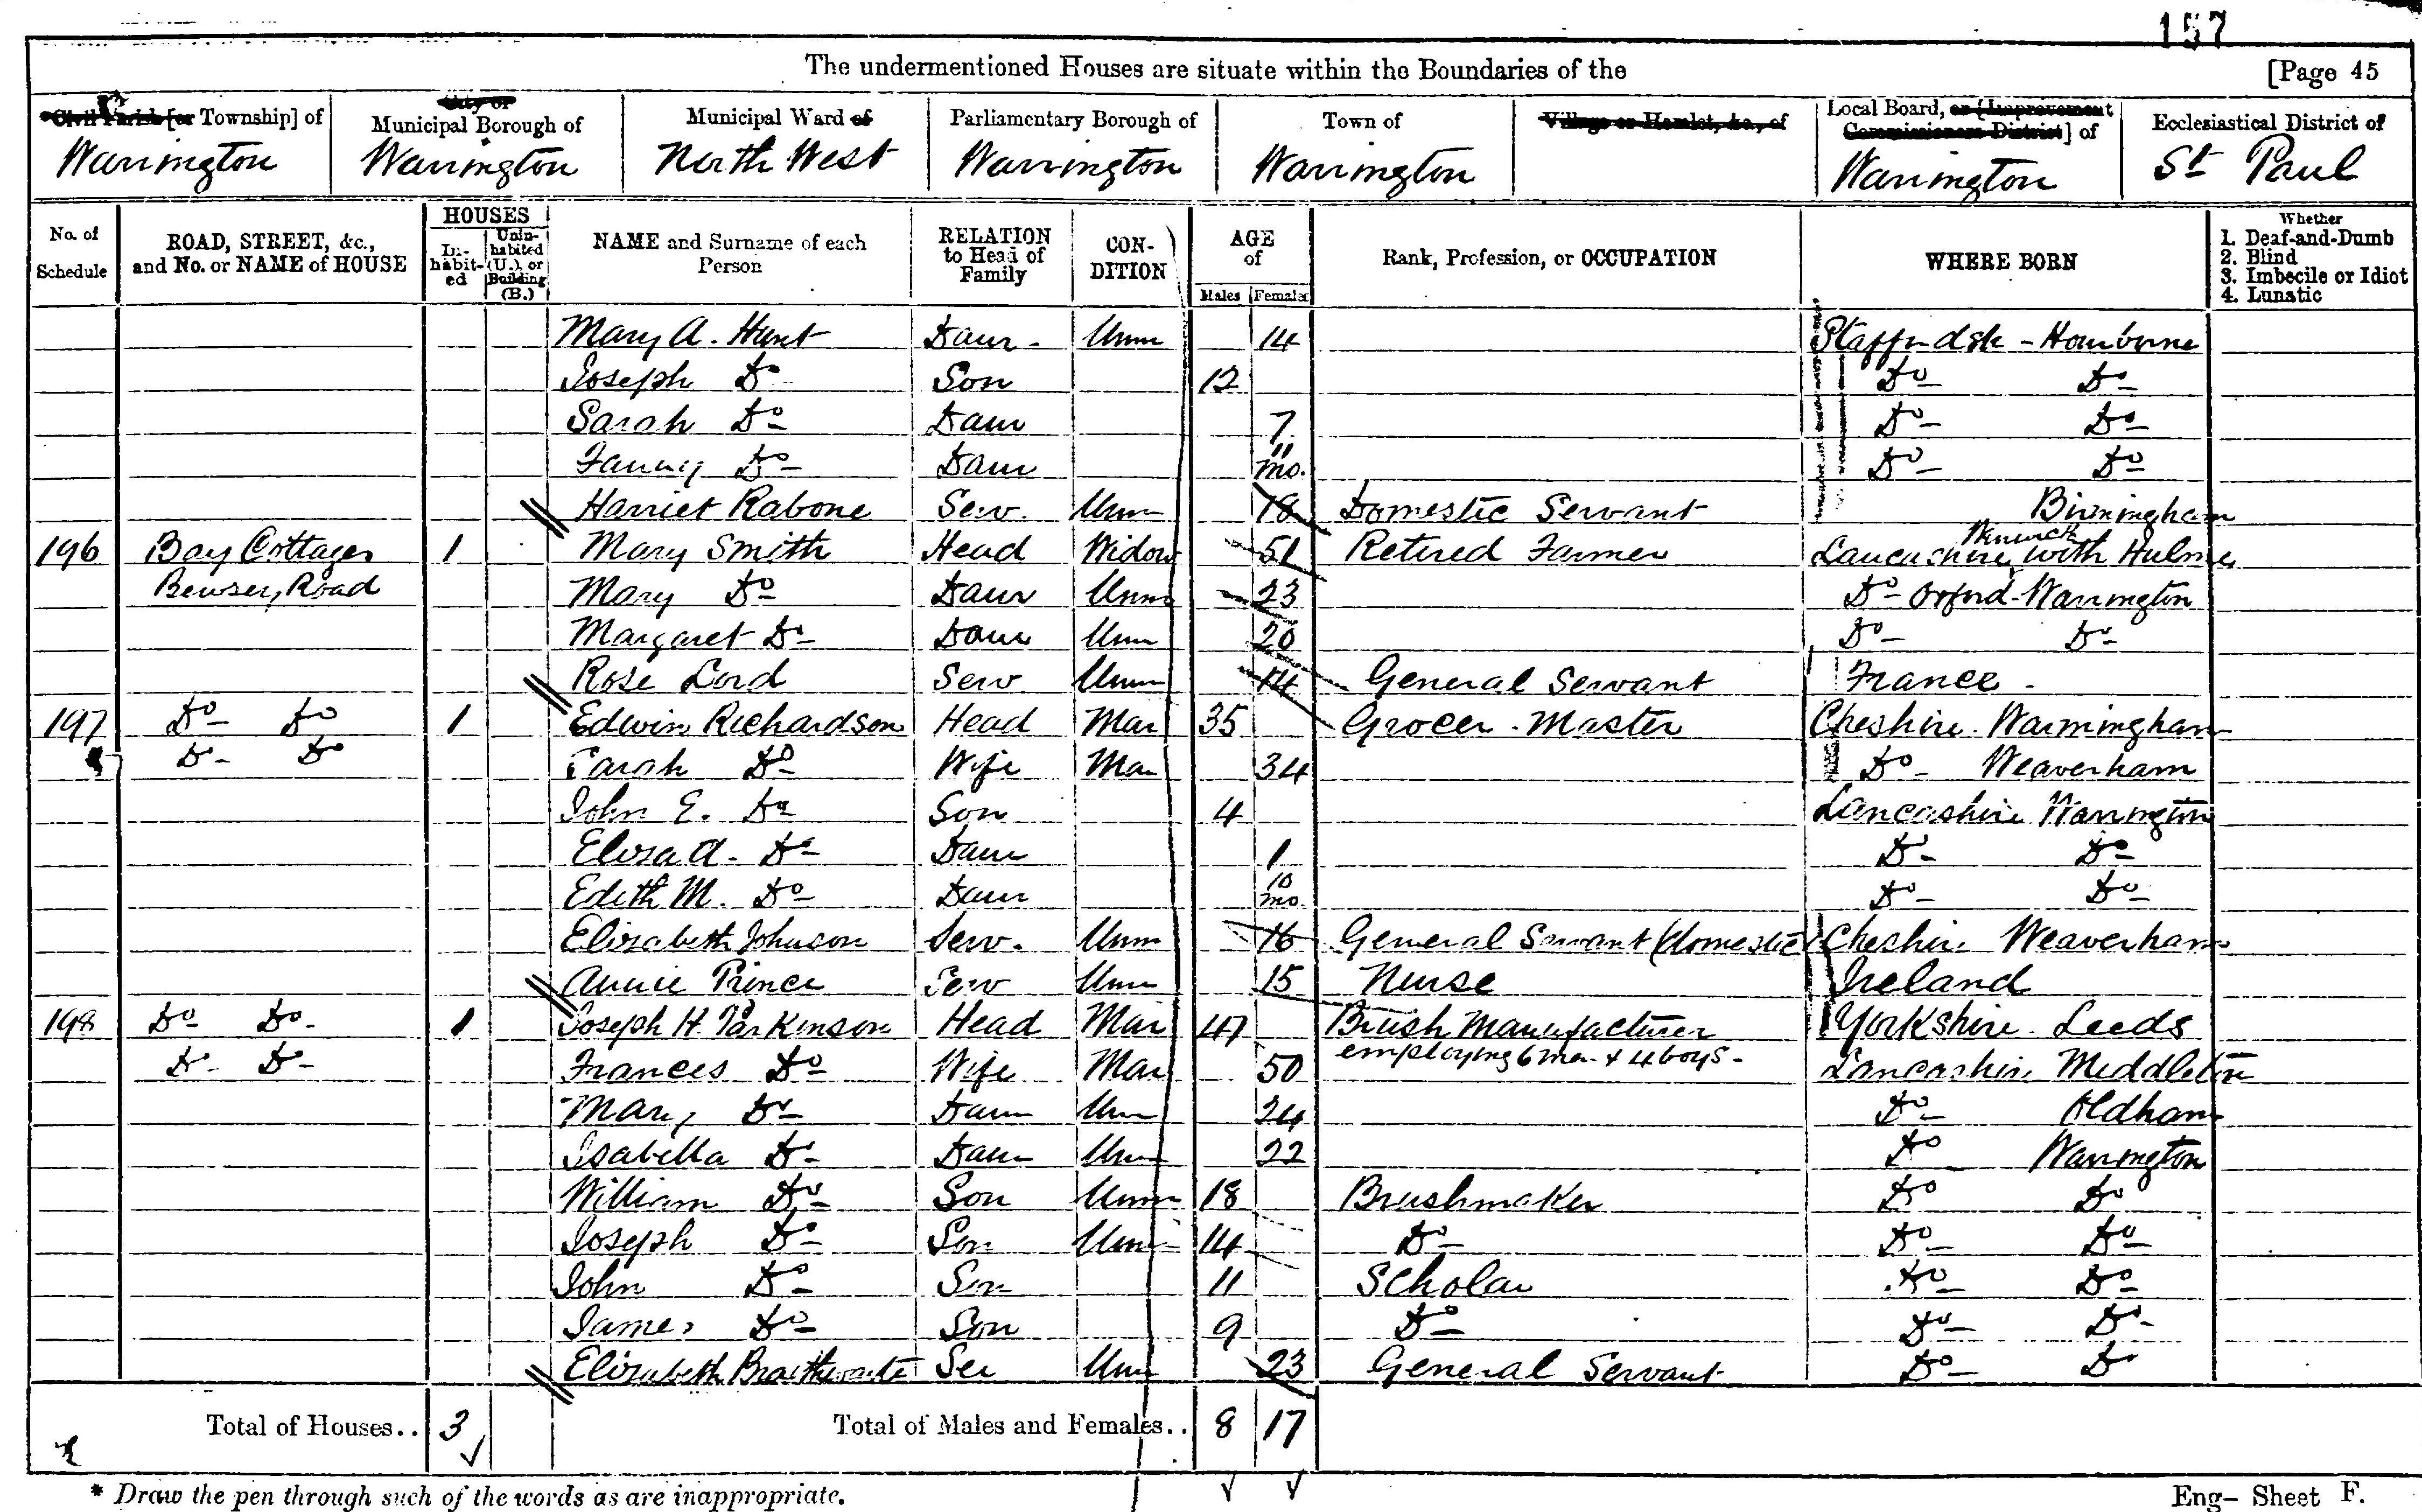 157
The undermentioned Houses are situate within the Boundaries of the [Page 45
Civil Parish [or Township] of
City or Municipal Borough of
Municipal Ward of
Parliamentary Borough of
Town of
Village or Hamlet, &c., of
Local Board, or [Improvement Commissioners District] of
Ecclesiastical District of
Warrington Warrington North West Warrington Warrington Warrington St Paul
No. of Schedule
ROAD, STREET, &c., and No. or NAME of HOUSE
HOUSES
In-habit-ed
Unin-habited (U.), or Building (B.)
NAME and Surname of each Person
RELATION to Head of Family
CON-DITION
AGE of
Males Females
Rank, Profession, or OCCUPATION
WHERE BORN
Whether
1. Deaf-and-Dumb
2. Blind
3. Imbecile or Idiot
4. Lunatic
Mary A. Hunt Daur - Unm 14 Staffordsh -
Joseph Do Son 12 Do Do
Sarah Do Daur 7 Do Do
Fanny Do Daur 11 mo. Do Do
Harriet Rabone Serv. Unm 18 Domestic Servant Birmingham
196 Bay Cottages 1 Mary Smith Head Widow 51 Retired Farmer Lancashire Winwick with Hulme
Bewsey Road Mary Do Daur Unm 23 Do Orford - Warrington
Margaret Do Daur Unm 20 Do Do
Rose Lord Serv Unm 14 General Servant France -
197 Do Do 1 Edwin Richardson Head Mar 35 Grocer - Master Cheshire - Warmingham
Do Do Sarah Do Wife Mar 34 Do Weaverham
John E. Do Son 4 Lancashire Warrington
Eliza A. Do Daur 1 Do Do
Edith M. Do Daur 10 mo. Do Do
Elizabeth Johnson Serv. Unm 16 General Servant (domestic) Cheshire Weaverham
Annie Prince Serv Unm 15 Nurse Ireland
198 Do Do 1 Joseph H. Parkinson Head Mar 47 Brush Manufacturer Yorkshire - Leeds
employing 6 men + 4 boys -
Do Do Frances Do Wife Mar 50 Lancashire Middleton
Mary Do Daur Unm 24 Do Oldham
Isabella Do Daur Unm 22 Do Warrington
William Do Son Unm 18 Brushmaker Do Do
Joseph Do Son Unm 14 Do Do Do
John Do Son 11 Scholar Do Do
James Do Son 9 Do Do Do
Elizabeth Braithwaite Ser Unm 23 General Servant Do Do
Total of Houses.. 3 Total of Males and Females.. 8 17
* Draw the pen through such of the words as are inappropriate.
Eng- Sheet F.